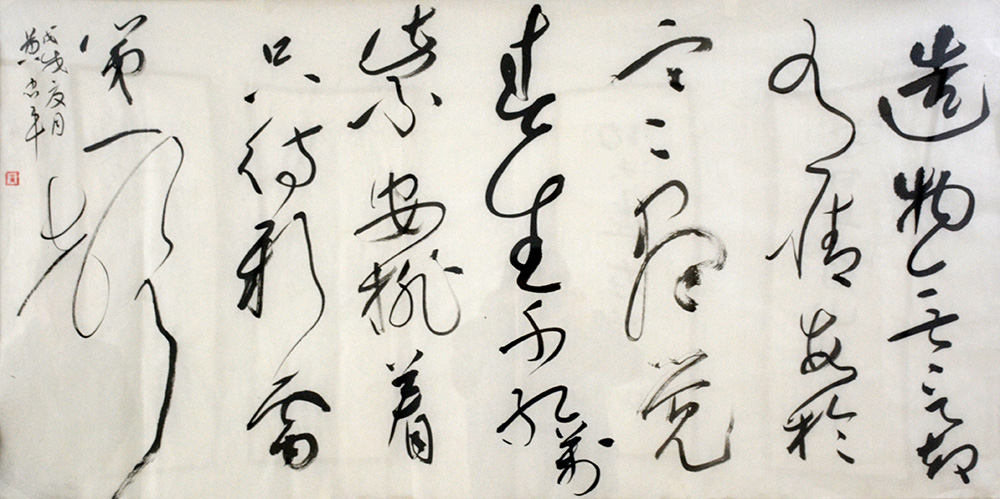 造物无言却
有情每於
寒尽觉
春生千红萬
紫安排着
只待新雷
第一声
戊戌夏月